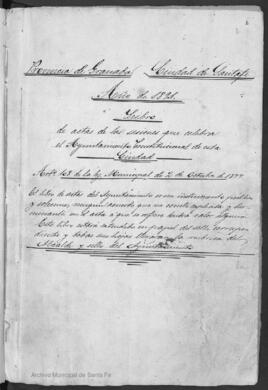 Provincia de Granada Ciudad de Santafé
Año de 1892.
Libro
de actas de las sesiones que celebra
el Ayuntamiento Constitucional de esta
Ciudad
Artº 108 de la ley Municipal de 2 de Octubre de 1877
El libro de actas del Ayuntamiento es un instrumento público
y solemne, ningun acuerdo que no conste explicita y ter-
minante en el acta a que se refiera tendrá valor alguno.
Este libro estará estendido en papel del sello correspon-
diente y todas sus hojas llevarán la rúbrica del
Alcalde y sello del Ayuntamiento
Archivo Municipal de Santa Fe